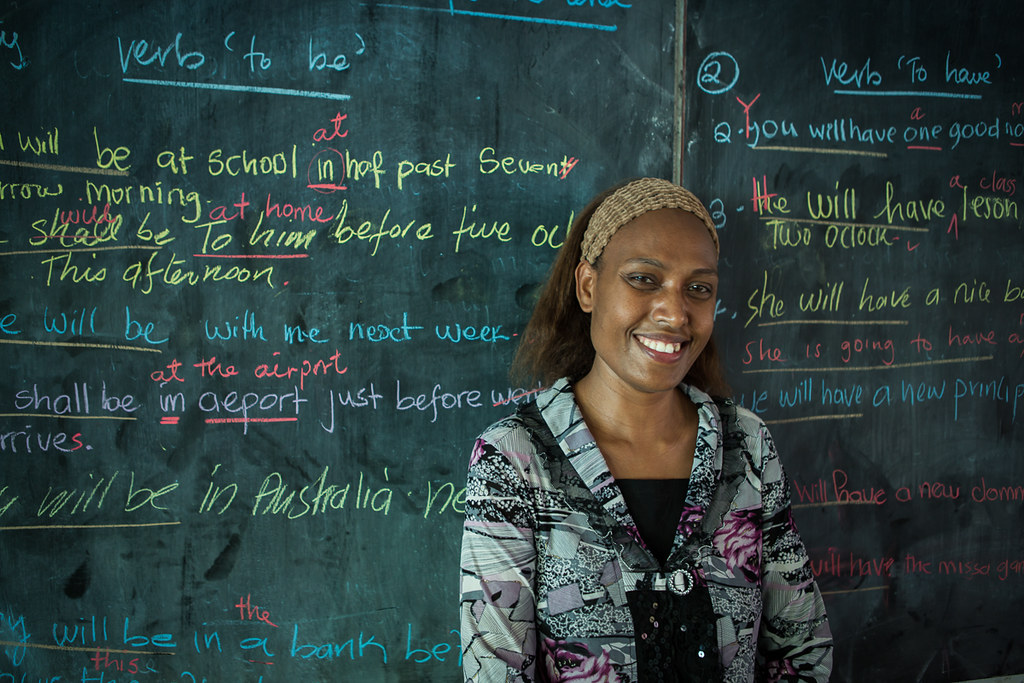 verb 'to be'
will be at school in haf past Seven
at
rrow morning.
shall be To him before five
will at home
This afternoon.
will be with me next week.
at the airport
shall be in aeport just before
rrives.
will be in Australia
the
will be in a bank be
this
② verb 'To have'
a
2. you will have one good
Y
a class
3. He will have leson
Two oclock
she will have a nice
she is going to have a
will have a new
will have a new
will have the